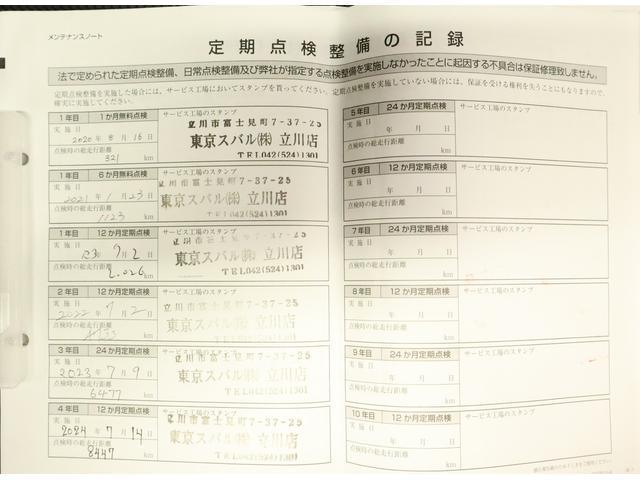 メンテナンスノート
定期点検整備の記録
法で定められた定期点検整備、日常点検整備及び弊社が指定する点検整備を実施しなかったことに起因する不具合は保証修理致しません。
定期点検整備を実施した場合には、サービス工場においてスタンプを貰ってください。定期点検整備を実施していない場合には、保証を受ける権利を失うことにもなりますので、
確実に実施してください。
1年目 1か月無料点検 サービス工場のスタンプ
実施日
2020年8月16日
点検時の総走行距離
321 km
立川市富士見町7-37-25
東京スバル㈱ 立川店
TEL042(524)1301
1年目 6か月無料点検 サービス工場のスタンプ
実施日
2021年1月23日
点検時の総走行距離
1123 km
立川市富士見町7-37-25
東京スバル㈱ 立川店
TEL042(524)1301
1年目 12か月定期点検 サービス工場のスタンプ
実施日
R3年7月2日
点検時の総走行距離
2,026 km
立川市富士見町7-37-25
東京スバル㈱ 立川店
TEL042(524)1301
2年目 12か月定期点検 サービス工場のスタンプ
実施日
2022年7月2日
点検時の総走行距離
km
立川市富士見町7-37-25
東京スバル㈱ 立川店
TEL042(524)1301
3年目 24か月定期点検 サービス工場のスタンプ
実施日
2023年7月9日
点検時の総走行距離
6477 km
立川市富士見町7-37-25
東京スバル㈱ 立川店
TEL042(524)1301
4年目 12か月定期点検 サービス工場のスタンプ
実施日
2024年7月14日
点検時の総走行距離
8447 km
立川市富士見町7-37-25
東京スバル㈱ 立川店
TEL042(524)1301
5年目 24か月定期点検 サービス工場のスタンプ
実施日
年 月 日
点検時の総走行距離
km
6年目 12か月定期点検 サービス工場のスタンプ
実施日
年 月 日
点検時の総走行距離
km
7年目 24か月定期点検 サービス工場のスタンプ
実施日
年 月 日
点検時の総走行距離
km
8年目 12か月定期点検 サービス工場のスタンプ
実施日
年 月 日
点検時の総走行距離
km
9年目 24か月定期点検 サービス工場のスタンプ
実施日
年 月 日
点検時の総走行距離
km
10年目 12か月定期点検 サービス工場のスタンプ
実施日
年 月 日
点検時の総走行距離
km